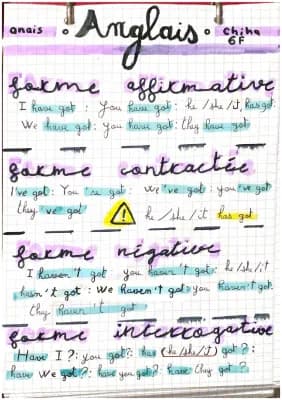 anais • Anglais • Chiha
6F
forme affirmative
I have got : You have got : he / she / it, has got :
We have got : you have got : they have got
forme contractée
I've got : You 've got : We 've got : you 've got
they 've got ! he / she / it has got
forme négative
I haven't got you haven't got : he / she / it
hasn't got : We haven't got you haven't got :
they haven't got
forme interrogative
Have I ? : you got ? : has (he / she / it) got ? :
have We got ? : have you got ? : have they got ?